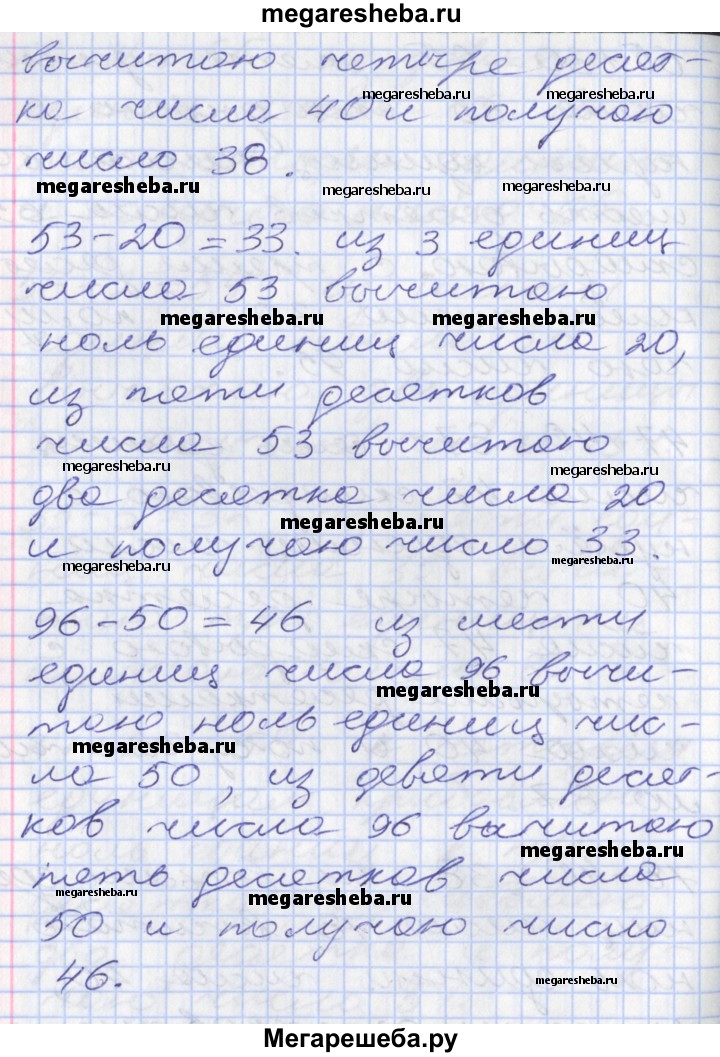 megaresheba.ru
вычитаю четыре десят-
megaresheba.ru megaresheba.ru
ка числа 40 и получаю
число 38.
megaresheba.ru megaresheba.ru megaresheba.ru
53-20=33. из 3 единиц
числа 53 вычитаю
megaresheba.ru megaresheba.ru
ноль единиц числа 20,
из пяти десятков
числа 53 вычитаю
megaresheba.ru megaresheba.ru
два десятка числа 20
megaresheba.ru
и получаю число 33.
megaresheba.ru megaresheba.ru
96-50=46 из шести
единиц числа 96 вычи-
megaresheba.ru
таю ноль единиц чис-
megaresheba.ru
ла 50, из девяти десят-
ков числа 96 вычитаю
megaresheba.ru
пять десятков числа
megaresheba.ru megaresheba.ru
50 и получаю число
46.
megaresheba.ru
Мегарешеба.ру